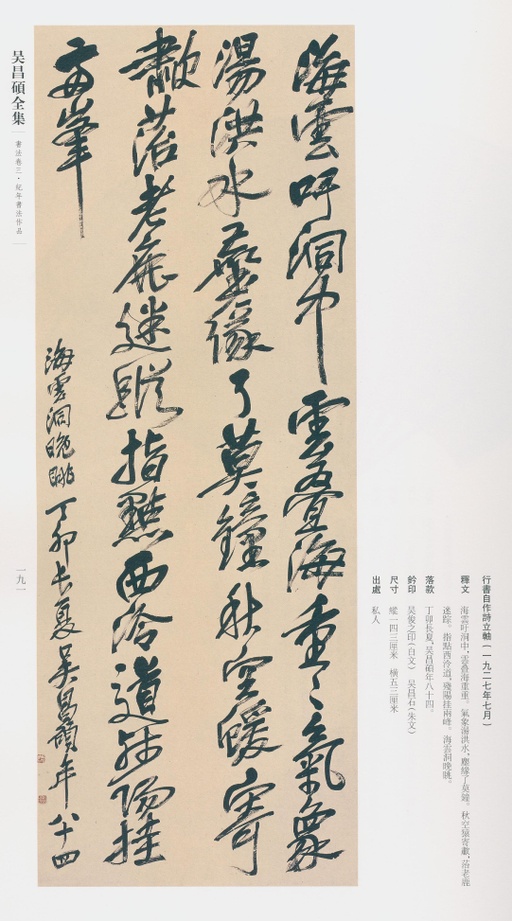 行書自作詩立軸(一九二七年七月)
釋文 海雲吁洞中,雲疊海重重。氣象湯洪水,塵緣了莫鐘。秋空猿寄歗,落老鹿
迷踪。指點西泠道,殘陽挂兩峰。海雲洞晚眺。
落款 丁卯長夏,吴昌碩年八十四。
鈐印 吴俊之印(白文) 吴昌石(朱文)
尺寸 縱一四三厘米 橫五三厘米
出處 私人
海雲吁洞中雲疊海重〻氣象
湯洪水塵緣了莫鐘秋空猨寄
歗落老鹿迷蹤指點西泠道殘陽挂
兩峯
海雲洞晚眺 丁卯長夏吴昌碩年八十四
吴昌碩全集
書法卷三·紀年書法作品
一九一